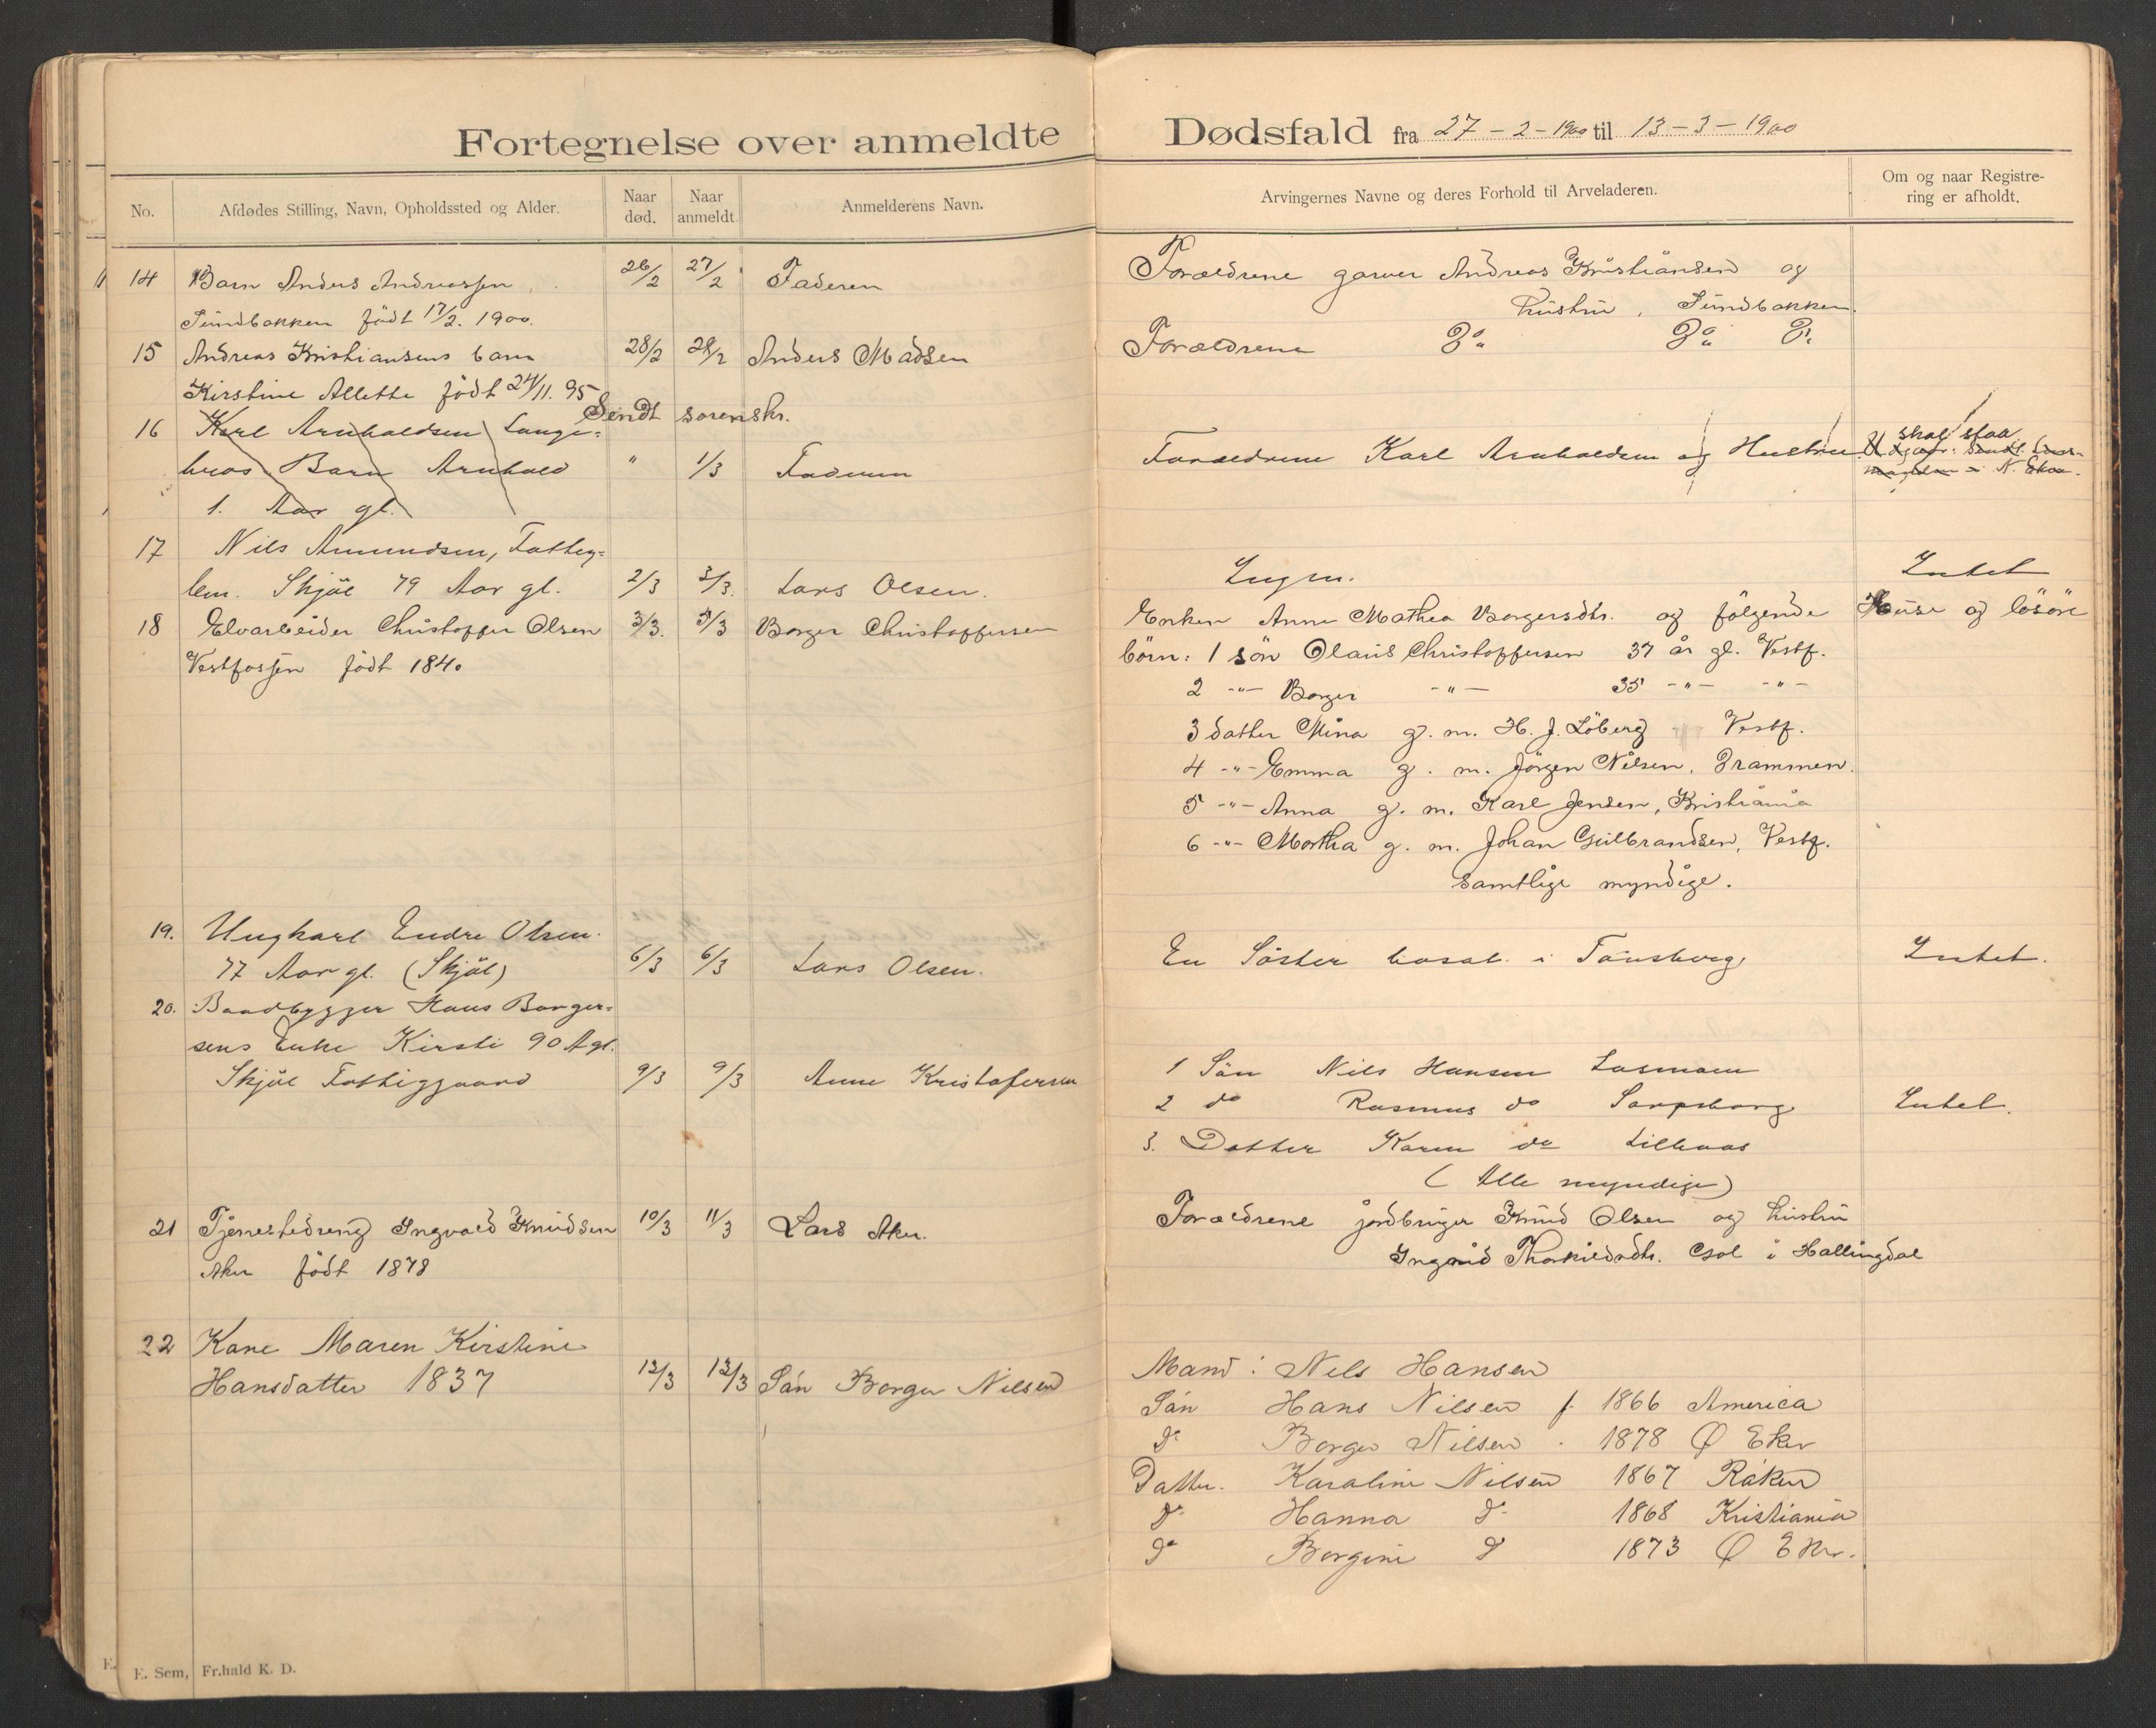 Fortegnelse over anmeldte Dødsfald fra 27-2-1900 til 13-3-1900
No.
Afdødes Stilling, Navn, Opholdssted og Alder.
Naar død.
Naar anmeldt.
Anmelderens Navn.
Arvingernes Navne og deres Forhold til Arveladeren.
Om og naar Registrering er afholdt.
14 Barn Anders Andreassen 26/2 27/2 Faderen Forældrene garver Andreas Kristiansen og
Sundbakken födt 17/2. 1900. hustru, Sundbakken.
15 Andreas Kristiansens barn 28/2 28/2 Anders Madsen Forældrene Do Do Do
Kirstine Allette födt 24/11. 95
Sendt sorenskr.
16 Karl Arnholdsen Lange=
bros Barn Arnhold " 1/3 Faderen Forældrene Karl Arnholdsen og Hustru. skal staa
1. Aar gl.
17 Nils Amundsen, Fatteg=
lem. Skjöl 79 Aar gl. 2/3 3/3. Lars Olsen. Ingen. Intet
18 Elvarbeider Christoffer Olsen 3/3. 5/3 Borger Christoffersen Enken Anne Mathea Borgersdtr. og fölgende Huse og lösöre
Vestfossen födt 1840 börn: 1 sön Olaus Christoffersen 37 år gl. Vestf.
2 -"- Borger -"- 35 -"- -"-
3 datter Mina g. m. H. J. Löberg Vestf.
4 -"- Emma g. m. Jörgen Nilsen, Drammen.
5 -"- Anna g. m. Karl Jensen, Kristiania
6 -"- Martha g. m. Johan Gulbrandsen, Vestf.
Samtlige myndige.
19. Ungkarl Endre Olsen.
77 Aar gl. (Skjöl) 6/3 6/3 Lars Olsen. En Söster bosat i Tönsberg Intet.
20. Baadbygger Hans Borger=
sens Enke Kirsti 90 A gl.
Skjöl Fattiggaard 9/3 9/3 Anne Kristofersen 1 Sön Nils Hansen
2 do Rasmus do Sarpsborg Intet.
3. Datter Karen do
(Alle myndige)
21 Tjenestedreng Ingvald Knudsen 10/3 11/3 Lars Aker. Forældrene jordbruger Knud Olsen og hustru
Aker födt 1878 Ingrid Thorkildsdtr. Gol i Hallingdal
22 Kone Maren Kirstine
Hansdatter 1837 12/3 13/3 Sön Borger Nilsen Mand: Nels Hansen
Sön Hans Nilsen f. 1866 America
do Borger Nilsen 1878 Ø Eker
Datter. Karoline Nilsen 1867 Röken
do Hanna do 1868 Kristiania
do Borgine do 1873 Ø Eker.
E. Sem, Fr.hald K. D.